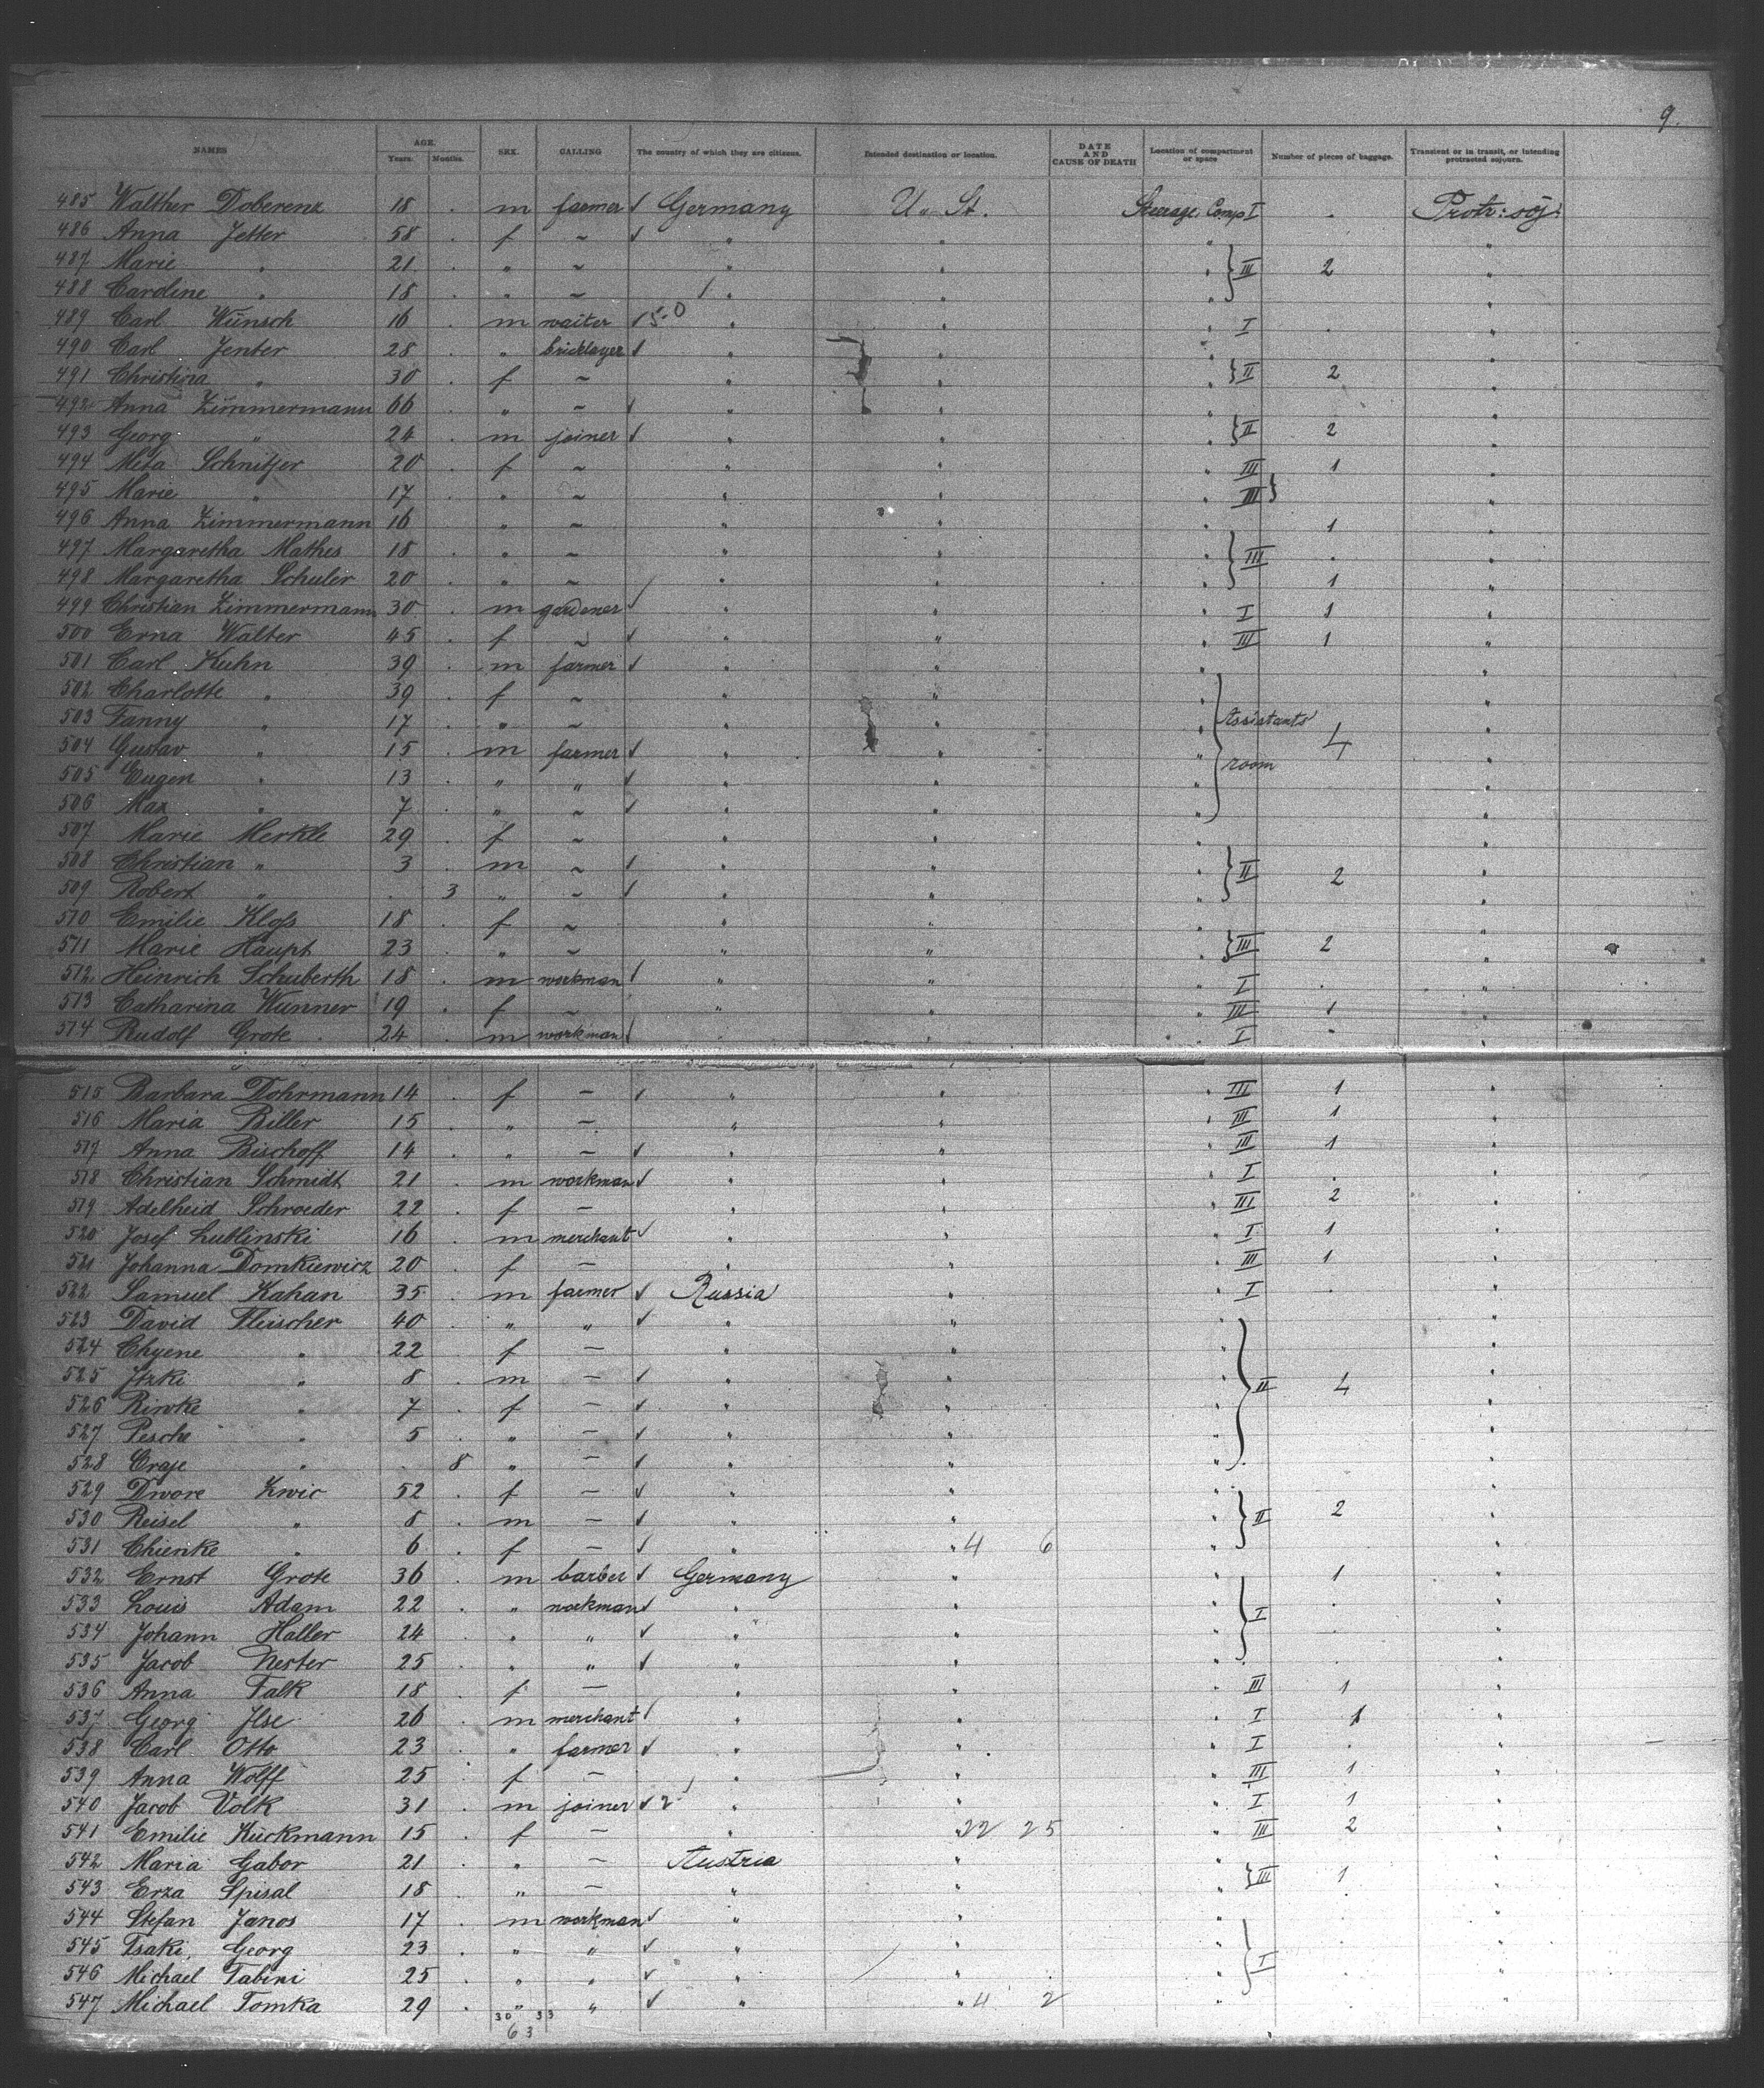 9.
NAMES AGE. Years. Months. SEX. CALLING The country of which they are citizens. Intended destination or location. DATE AND CAUSE OF DEATH Location of compartment or space Number of pieces of baggage. Transient or in transit, or intending protracted sojourn.
485 Walther Doberenz 18 . m farmer ✓ Germany U. St. Steerage Comp I . Protr: soj:
486 Anna Jetter 58 . f ~ ✓ " " " "
487 Marie " 21 . " ~ " " " } III 2 "
488 Caroline " 18 . " ~ 1 " " " "
489 Carl Wünsch 16 . m waiter ✓ 50 " " I . "
490 Carl Jenter 28 . " bricklayer ✓ " " " "
491 Christina " 30 . f ~ " " " } II 2 "
492 Anna Zimmermann 66 " ~ ✓ " " " "
493 Georg " 24 . m joiner ✓ " " " } II 2 "
494 Meta Schnitjer 20 . f ~ " " " III 1 "
495 Marie " 17 . " ~ " " " III } "
496 Anna Zimmermann 16 " ~ " " " 1 "
497 Margaretha Mathes 18 . " ~ " " " } III . "
498 Margaretha Schuler 20 . " ~ " " " 1 "
499 Christian Zimmermann 30 . m gardener ✓ " " " I 1 "
500 Erna Walter 45 . f ~ ✓ " " " III 1 "
501 Carl Kuhn 39 . m farmer ✓ " " " "
502 Charlotte " 39 . f ~ " " " "
503 Fanny " 17 . " ~ " " " Assistants' "
504 Gustav " 15 . m farmer ✓ " " " 4 "
505 Eugen " 13 . " " ✓ " " " room "
506 Max " 7 . " ~ ✓ " " " "
507 Marie Merkle 29 . f ~ " " " "
508 Christian " 3 . m ~ ✓ " " " } II 2 "
509 Robert " . 3 " ~ ✓ " " " "
510 Emilie Kloss 18 . f ~ " " " "
511 Marie Haupt 23 . " ~ " " " } III 2 "
512 Heinrich Schuberth 18 . m workman ✓ " " I . "
513 Catharina Wunner 19 . f ~ " " III 1 "
514 Rudolf Grote 24 . m workman ✓ " " I " "
515 Barbara Dohrmann 14 . f — ✓ " " " III 1 "
516 Maria Biller 15 . " — " " " III 1 "
517 Anna Bischoff 14 . " — ✓ " " " III 1 "
518 Christian Schmidt 21 . m workman ✓ " " " I . "
519 Adelheid Schroeder 22 . f — " " " III 2 "
520 Josef Lublinski 16 . m merchant ✓ " " " I 1 "
521 Johanna Domkiewicz 20 . f — " " " III 1 "
522 Samuel Kahan 35 . m farmer ✓ Russia " " I . "
523 David Fleischer 40 . " " ✓ " " " "
524 Chyene " 22 . f — " " " "
525 Itzki " 8 . m — ✓ " " " } II 4 "
526 Riwke " 7 . f — ✓ " " " "
527 Pesche " 5 . " — ✓ " " " "
528 " . 8 " — ✓ " " " "
529 Dwore Kwic 52 . f — ✓ " " " "
530 Reisel " 8 . m — ✓ " " " } II 2 "
531 Chienke " 6 . f — ✓ " " 4 6 " "
532 Ernst Grote 36 . m barber ✓ Germany " " 1 "
533 Louis Adam 22 . " workman ✓ " " " } I . "
534 Johann Haller 24 . " " ✓ " " " . "
535 Jacob Nester 25 . " " ✓ " " " . "
536 Anna Falk 18 . f — " " " III 1 "
537 Georg Ilse 26 . m merchant ✓ " " " I 1 "
538 Carl Otto 23 . " farmer ✓ " " " I . "
539 Anna Wolff 25 . f — " " " III 1 "
540 Jacob Volk 31 . m joiner ✓ 2 " " " I 1 "
541 Emilie Kückmann 15 . f — " 22 25 " III 2 "
542 Maria Gabor 21 . " — Austria " " } III 1 "
543 Erza Spisal 18 . " — " " " "
544 Stefan Janos 17 . m workman ✓ " " " . "
545 Tsaki, Georg 23 . " " ✓ " " " } I . "
546 Michael Tabini 25 . " " ✓ " " " . "
547 Michael Tomka 29 . " " ✓ " " 4 2 " "
30 33
63